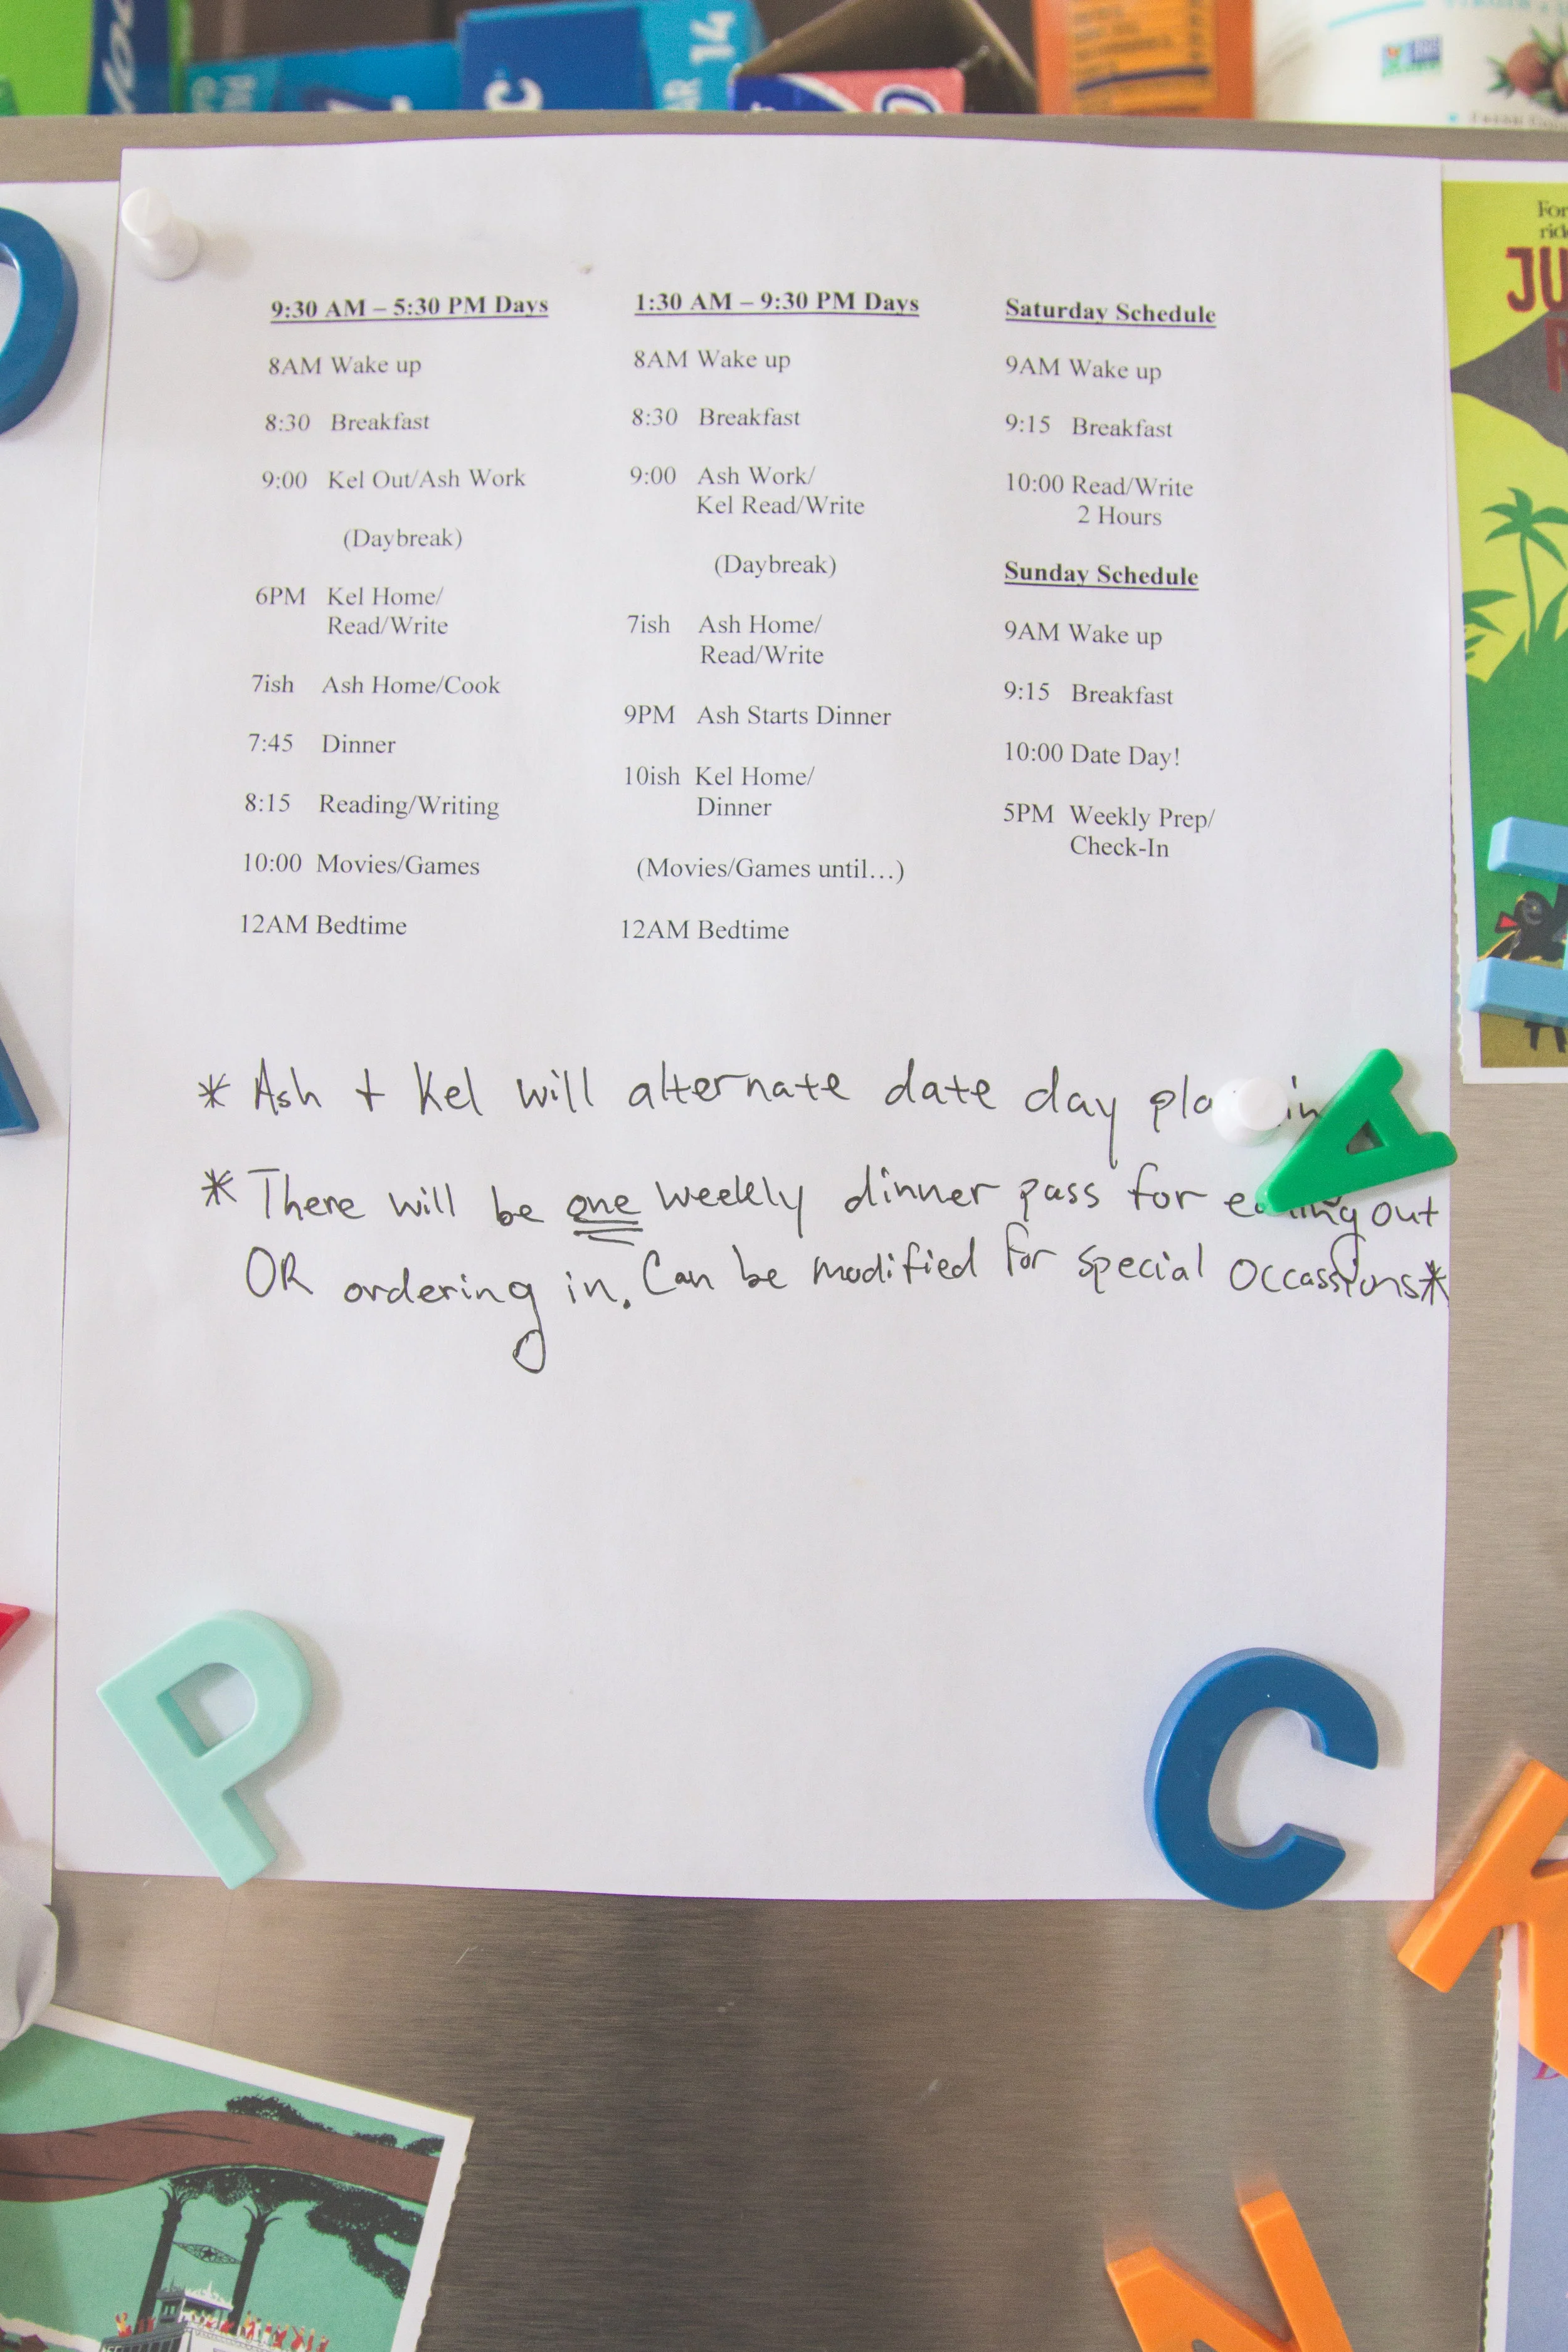 14
C
For
JU
R
9:30 AM – 5:30 PM Days
8AM Wake up
8:30 Breakfast
9:00 Kel Out/Ash Work
(Daybreak)
6PM Kel Home/
Read/Write
7ish Ash Home/Cook
7:45 Dinner
8:15 Reading/Writing
10:00 Movies/Games
12AM Bedtime
1:30 AM – 9:30 PM Days
8AM Wake up
8:30 Breakfast
9:00 Ash Work/
Kel Read/Write
(Daybreak)
7ish Ash Home/
Read/Write
9PM Ash Starts Dinner
10ish Kel Home/
Dinner
(Movies/Games until...)
12AM Bedtime
Saturday Schedule
9AM Wake up
9:15 Breakfast
10:00 Read/Write
2 Hours
Sunday Schedule
9AM Wake up
9:15 Breakfast
10:00 Date Day!
5PM Weekly Prep/
Check-In
* Ash + Kel will alternate date day
* There will be one weekly dinner pass for eating out
OR ordering in. Can be modified for special occassions*
A
P
C
K
N